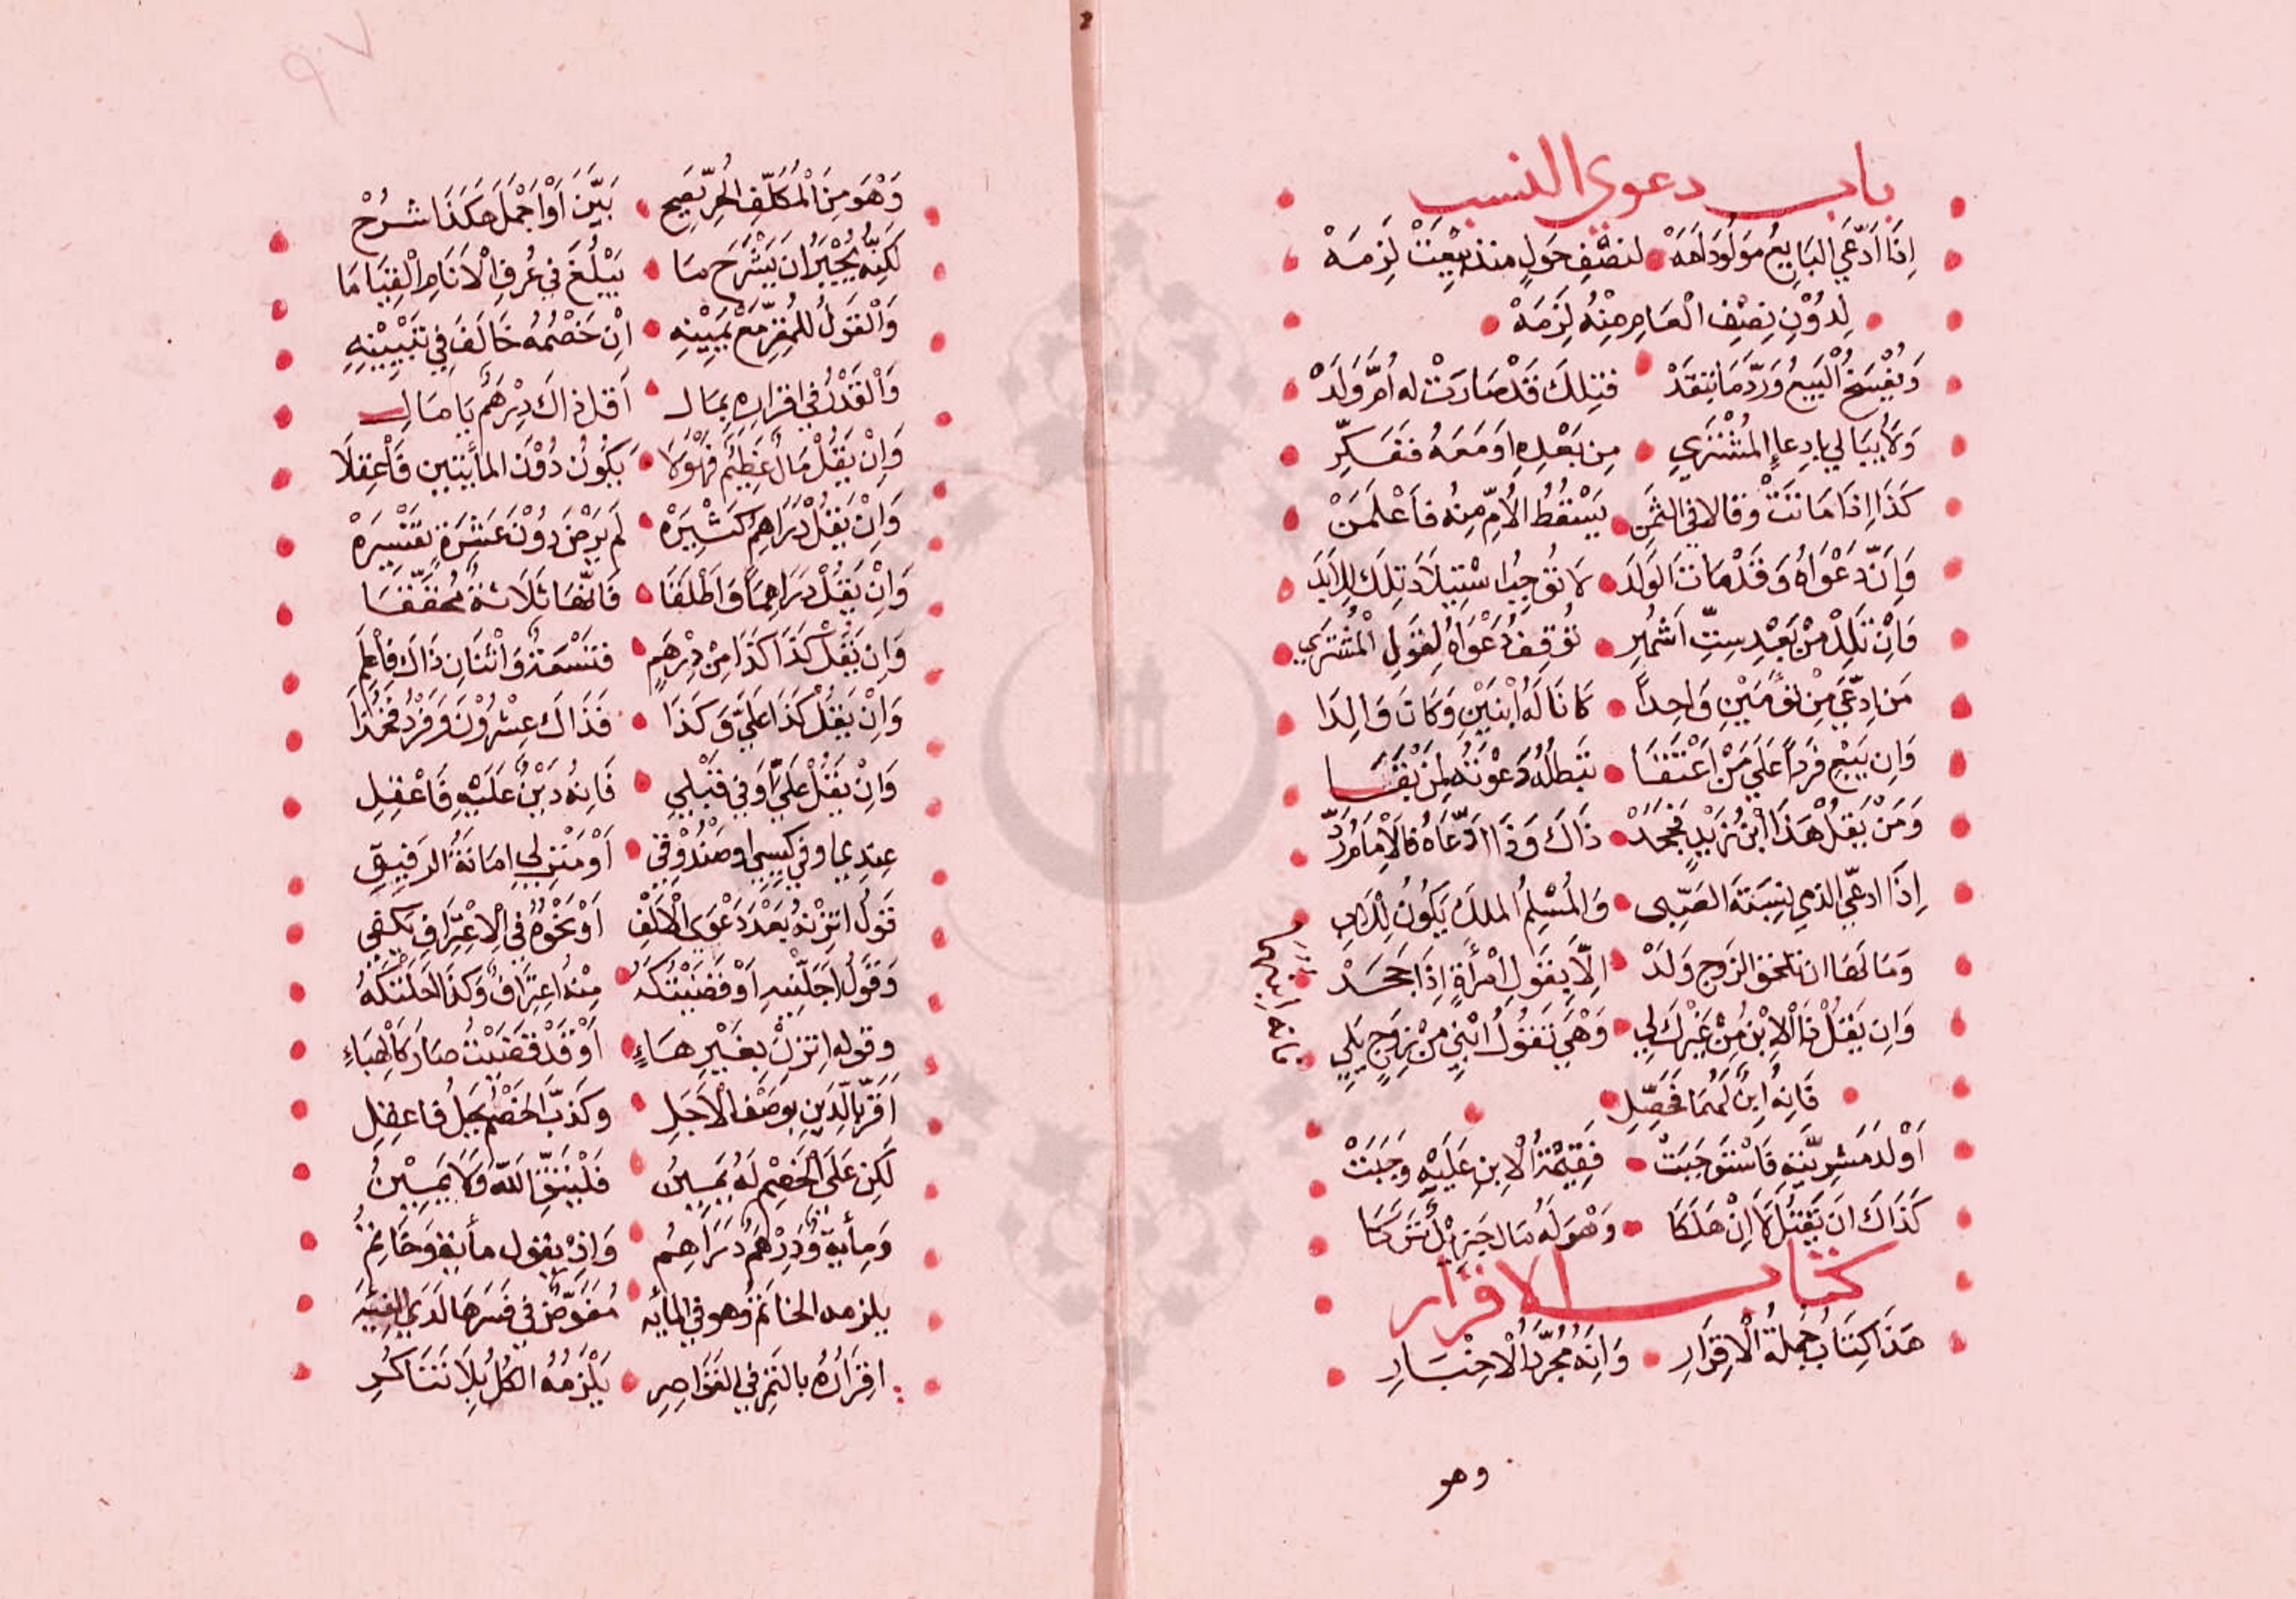 باب دعوي النسب
إِذَا ادَّعَي البَايِعُ مَولُودَ اَمَهْ لنصْفِ حَولٍ منذ بِيْعَتْ لَزِمَهْ
لِدُوْنِ نِصْفِ الْعَامِ مِنْهُ لَزِمَهْ
وَيُفْسَخُ الْبَيعُ وَرَدَّ مَا نَقَدْ فتِلكَ قَدْ صَارَتْ له اُمَّ وَلَدْ
وَلاَ يُبَالي بادِعاءِ المُشْتَرِي مِن بَعْدِهِ اوَ مَعَهُ فَفَكِّرِ
كَذَا اِذَا مَاتَتْ وقالا في الثمَن يَسْقُطُ الاُمِّ مِنُه فاَعْلَمَنْ
وَاِنَّ دَعْوَاهُ وَقَدْ مَاتَ الوَلَدَ لاَ تُوجِبُ اسْتِيلاَدَ تِلكَ لِلاَبَدَ
فَاِنْ تَلِدْ مِنْ بَعْدِ سِتِّ اَشْهُرِ تُوقِفُ دَعْوَاهُ لِقَولِ الْمُشْتَرِي
مَن اِدّعَي مِنْ تَوأَمَيْنِ وَاحِداً كَانَا لَهُ ابْنَيْنِ وَكَانَ وَالِدَا
وَاِن يَبِعْ فَرَداً عَلَي مَنْ اَعْتَقَا تَبطلُ دَعْوَتُه لِمَنْ بَقَا
وَمَنْ يَقُلْ هَذَا ابْنُ زَيْدٍ فَجَحَدْ ذَاكَ وَذَا ادَّعَاهُ فالاِمَامُ رَدّ
إِذَا ادعّي الذمي نِسبَةَ الصَّبِى وَالمُسْلِمُ الملكَ يَكُونُ لِلْذمِى
وَمَا لَهَا ان تلحق الزَوج وَلَدْ اِلّا بِقَولِ امْرأَةٍ اِذَا جَحَدْ
وَاِن يَقُلْ ذَا الاِبْن مِنْ غَيْرِكَ لِي وَهْيَ تَقُولُ ابْنِي مِنْ زَوجٍ يَلي
فَانهُ اِبنٌ لَهُمَا فَحَصِّلِ
اَوْلَدَ مَشرِيَّتهِ فَاسْتوجَبَتْ فَقِيْمَةُ الاِبنِ عَلَيْهِ وَجَبَتْ
كَذَاكَ ان يَقْتُلَ لاَ اِنْ هَلَكَا وَهْوَ لَهُ مَال جَزِيْلٌ تَرَكَا
كتاب الاقرار
هَذَا كِتَابُ جُمْلَةُ الْاِقرَارِ وَاِنَهُ مُجَرَّدُ الْاخِبَارِ
وهو
وَهْوَ مِنَ الْمُكَلَّفِ الحُرِّ يَصِحّ بَيَّنَ اَوْ اَجْمَلَ هَكَذَا شُرِحْ
لَكِنَّهُ يُجْبَرُ اَن يَشْرَحَ مَا يَبْلُغُ في عُرفِ الْاَنَامِ الْقِيَامَا
وَالْقَولُ للمُقِرِّ مَعْ يَمِيْنِهِ اِنْ خَصْمُهُ خَالَفَ فِي تبيِيْنِهِ
وَالْقَدْرُ في اقرارِهِ بِمَال اَقل ذاك دِرْهَمٌ يَا صَالِ
وَاِنْ يَقُلْ مَالٌ عَظِيْمٌ فَهْوَ لَا يَكُونُ دُوْنَ المأيتين فَاْعقِلَا
وَاِنْ يَقُلْ دَرَاهِمٌ كَثِيْرَهْ لَمْ يَرْضَ دُوْنَ عَشَرَةٍ تَفْسِيرَهْ
وَاِنْ يَقُلْ دَرَاهِماً وَاَطْلَقَا فَانَّهَا ثَلَاثةٌ مُحَقَّقَا
وَاِن يَقُلْ كَذَا كَذَا مِنْ دِرْهَمٍ فتَسْعَةٌ وَاثْنَانِ ذَاكَ فَاعْلَمِ
وَاِنْ يَقُلْ كَذَا عَلَيَّ وَكَذَا فَذَاكَ عِشْرُوْنَ وَفَرْدٌ فَخُذَا
وَاِنْ يَقُلْ عَلَيَّ اَوْ في قِبَلِي فَانهُ دَيْنٌ عَلَيْهِ فَاعْقِلِ
عِندِي وفي كِيسِي اوصَنْدُوْقِي اَوْ مَنْزِلي امَانَةُ الرَفِيقِ
قَولُ اتزِنْهُ بَعْدَ دَعْوَي الْاَلْفِ اَوْ نَحْوهُ في الْاِعْتِرَافِ يَكْفِي
وَقَولُ اجَلْنِيهِ اَوْ قَضَيْتُكَهُ مِنْهُ اعِتِرَافٌ وَكَذَا اَحَلْتُكَهُ
وقوله اتزن بِغَيْرِ هَاءٍ اَوْ قَدْ قَضَيْتُ صَارَ كَالْهَبَاءِ
اَقَرَّ بِالدَّينِ بِوَصْفِ الْاَجَلِ وكَذبَّ الخَصْمُ يَحِلُ فاعقلِ
لَكِن عَلَى الْخَصِمِ لَهُ يَمِيْنُ فَلْيَتَّقِ اللهَ وَلَا يَمِيْنُ
وَمِأيةٌ وَدِرْهَمٌ دَرَاهِمُ وَاِنْ يقول مأية وَخَاتِمُ
يلزمه الخاتم وهو في المايه مُفَوَّضٌ في فَسرهَا لَدَي
اقرَارُهُ بالتمر في القَوَاصِرِ يَلْزَمُهُ الكُلُ بِلَا تَنَاكُرِ